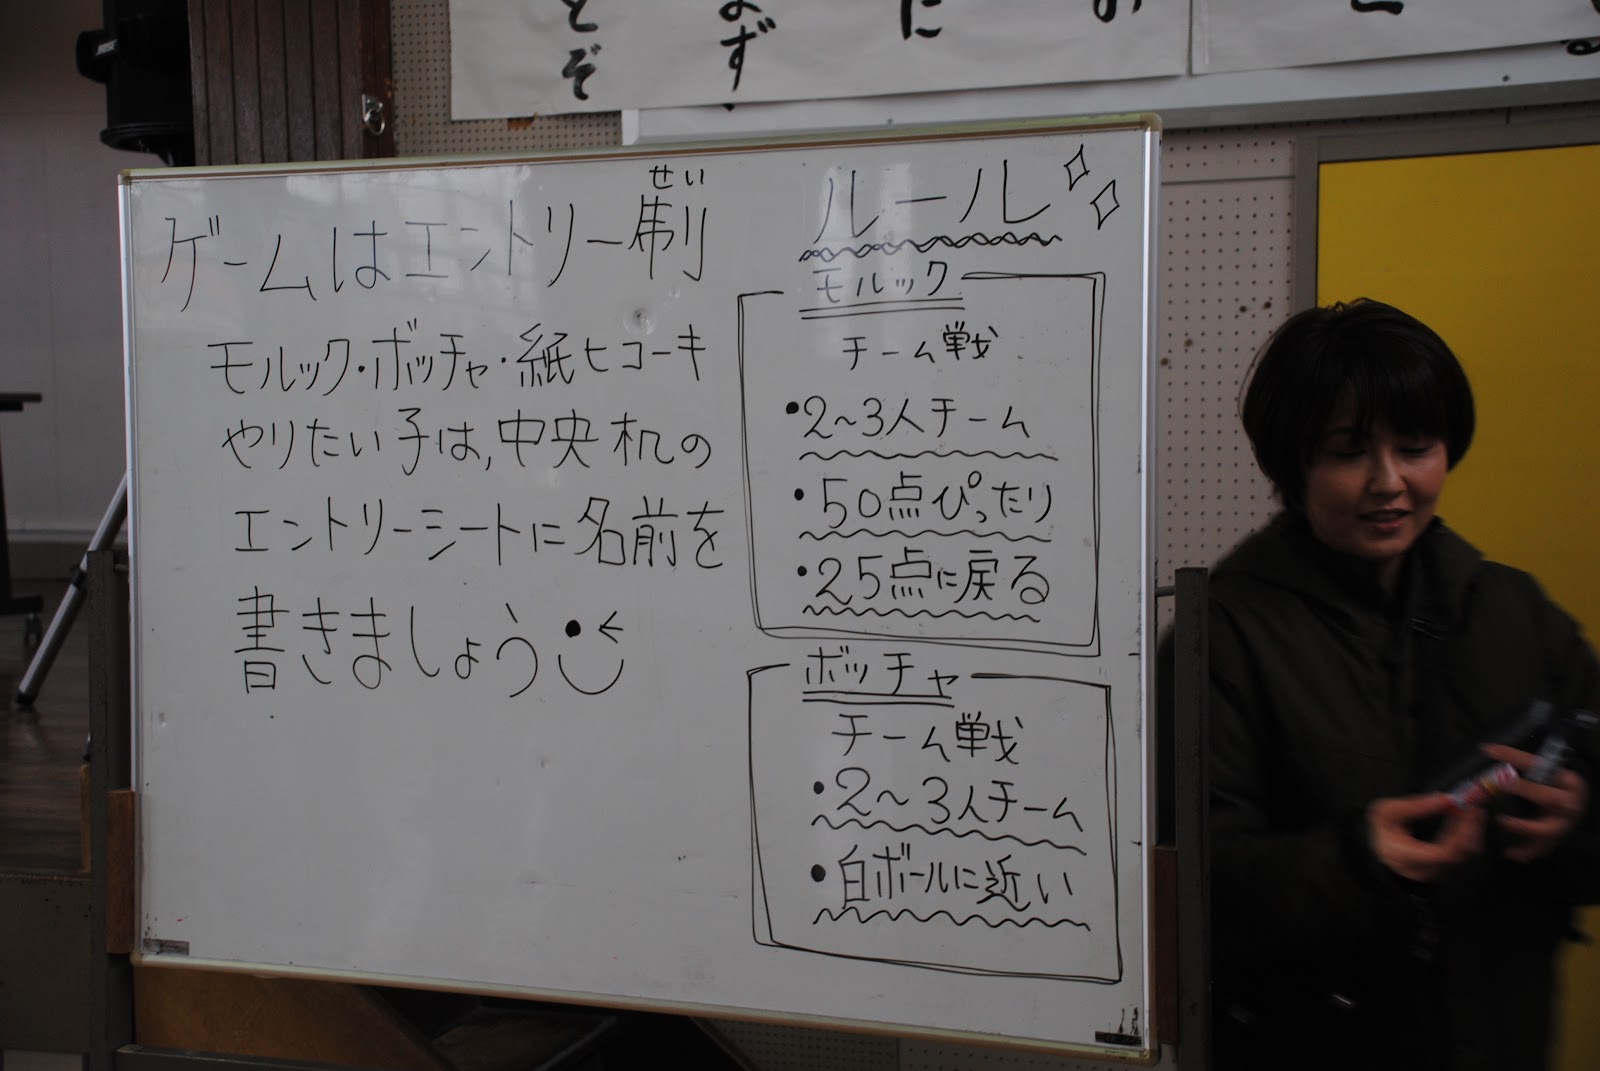 せい
ゲームはエントリー制
モルック・ボッチャ・紙ヒコーキ
やりたい子は、中央机の
エントリーシートに名前を
書きましょう
ルール
モルック
チーム戦
・2~3人チーム
・50点ぴったり
・25点に戻る
ボッチャ
チーム戦
・2~3人チーム
・白ボールに近い